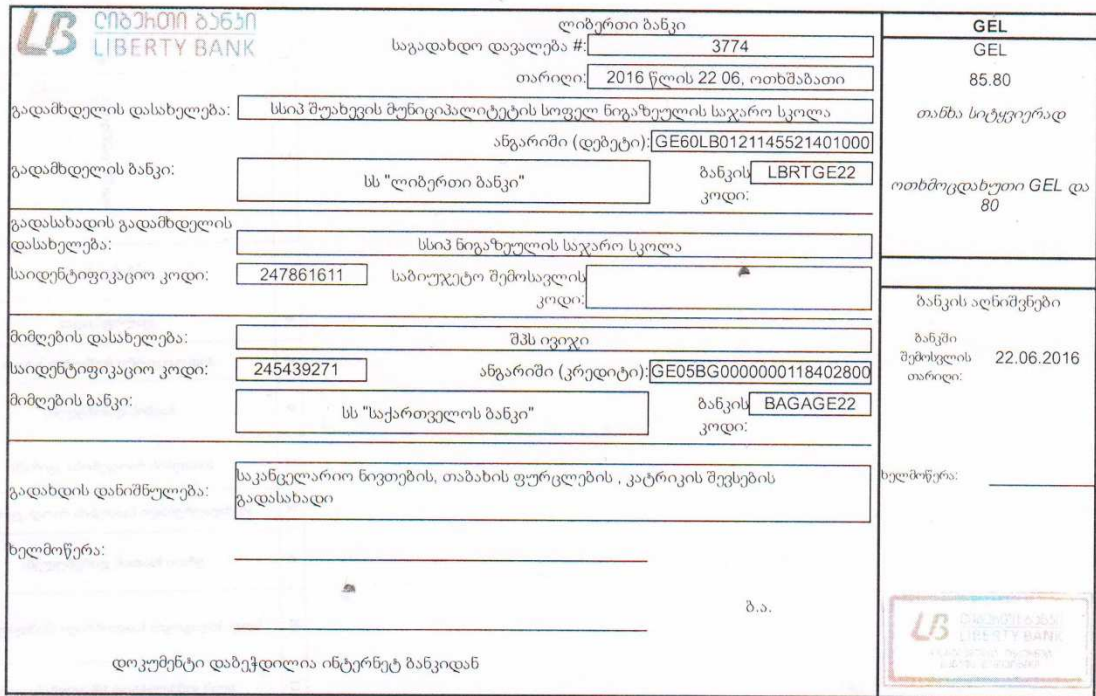 ლიბერთი ბანკი
LIBERTY BANK
ლიბერთი ბანკი
საგადახდო დავალება #: 3774
თარიღი: 2016 წლის 22 06, ოთხშაბათი
გადამხდელის დასახელება: სსიპ შუახევის მუნიციპალიტეტის სოფელ ნიგაზეულის საჯარო სკოლა
ანგარიში (დებეტი): GE60LB0121145521401000
გადამხდელის ბანკი: სს "ლიბერთი ბანკი" ბანკის კოდი: LBRTGE22
გადასახადის გადამხდელის
დასახელება: სსიპ ნიგაზეულის საჯარო სკოლა
საიდენტიფიკაციო კოდი: 247861611 საბიუჯეტო შემოსავლის
კოდი:
მიმღების დასახელება: შპს ივიჯი
საიდენტიფიკაციო კოდი: 245439271 ანგარიში (კრედიტი): GE05BG0000000118402800
მიმღების ბანკი: სს "საქართველოს ბანკი" ბანკის კოდი: BAGAGE22
გადახდის დანიშნულება: საკანცელარიო ნივთების, თაბახის ფურცლების , კატრიკის შევსების
გადასახადი
ხელმოწერა:
ბ.ა.
დოკუმენტი დაბეჭდილია ინტერნეტ ბანკიდან
GEL
GEL
85.80
თანხა სიტყვიერად
ოთხმოცდახუთი GEL და
80
ბანკის აღნიშვნები
ბანკში
შემოსვლის 22.06.2016
თარიღი:
ხელმოწერა:
ლიბერთი ბანკი
LIBERTY BANK